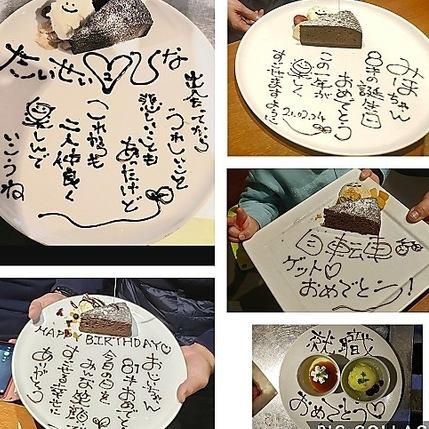 たいせい♡ひな
出会ってから
うれしいこと
悲しいことも
あったけど
これからも
二人仲良く
楽しんで
いこうね
みおちゃん
8才の誕生日
おめでとう
この一年が
楽しく
すごせますように
21.02.24
自転車
ゲット♡
おめでとう!
HAPPY BIRTHDAY♡
おじいちゃん
81才おめでとう
今日の日を
みんな笑顔で
すごせる幸せに
ありがとう
就職
おめでとう♡
PIC COLLAG